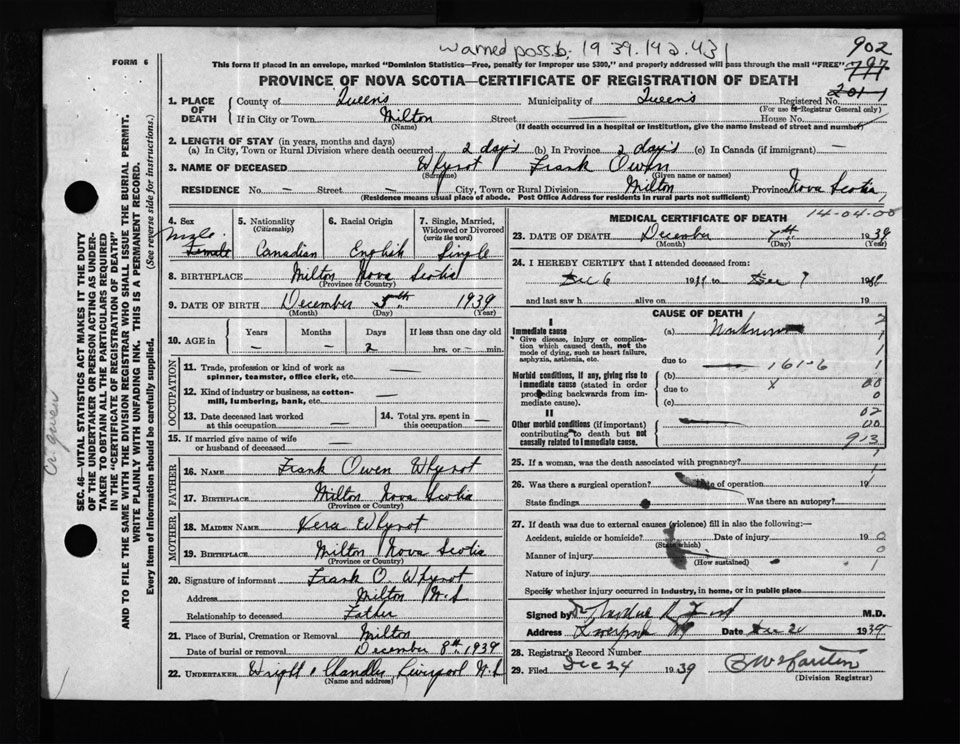 902
FORM 6
This form if placed in an envelope, marked "Dominion Statistics—Free, penalty for improper use $300," and properly addressed will pass through the mail "FREE" 797
PROVINCE OF NOVA SCOTIA—CERTIFICATE OF REGISTRATION OF DEATH
1. PLACE OF DEATH County of Queens Municipality of Queens Registered No. 201
(For use of Registrar General only)
If in City or Town Milton Street House No.
(Name) (If death occurred in a hospital or institution, give the name instead of street and number)
2. LENGTH OF STAY (in years, months and days)
(a) In City, Town or Rural Division where death occurred 2 day's (b) In Province 2 day's (c) In Canada (if immigrant) —
3. NAME OF DECEASED Whynot Frank Owen
(Surname) (Given name or names)
RESIDENCE No. — Street — City, Town or Rural Division Milton Province Nova Scotia
(Residence means usual place of abode. Post Office Address for residents in rural parts not sufficient)
SEC. 46—VITAL STATISTICS ACT MAKES IT THE DUTY
OF THE UNDERTAKER OR PERSON ACTING AS UNDER-
TAKER TO OBTAIN ALL THE PARTICULARS REQUIRED
IN THE "CERTIFICATE OF REGISTRATION OF DEATH"
AND TO FILE THE SAME WITH THE DIVISION REGISTRAR WHO SHALL ISSUE THE BURIAL PERMIT.
WRITE PLAINLY WITH UNFADING INK. THIS IS A PERMANENT RECORD.
Every item of Information should be carefully supplied. (See reverse side for instructions.)
4. Sex Male Female
5. Nationality (Citizenship) Canadian
6. Racial Origin English
7. Single, Married, Widowed or Divorced (write the word) Single
8. BIRTHPLACE Milton Nova Scotia
(Province or Country)
9. DATE OF BIRTH December 5th 1939
(Month) (Day) (Year)
10. AGE in Years — Months — Days 2 If less than one day old hrs. or — min.
OCCUPATION
11. Trade, profession or kind of work as spinner, teamster, office clerk, etc. —
12. Kind of industry or business, as cotton-mill, lumbering, bank, etc. —
13. Date deceased last worked at this occupation —
14. Total yrs. spent in this occupation —
15. If married give name of wife or husband of deceased —
FATHER
16. NAME Frank Owen Whynot
17. BIRTHPLACE Milton Nova Scotia
(Province or Country)
MOTHER
18. MAIDEN NAME Vera Whynot
19. BIRTHPLACE Milton Nova Scotia
(Province or Country)
20. Signature of informant Frank O. Whynot
Address Milton N.S
Relationship to deceased Father
21. Place of Burial, Cremation or Removal Milton
Date of burial or removal December 8th 1939
22. UNDERTAKER Wright & Chandler Liverpool N.S
(Name and address)
MEDICAL CERTIFICATE OF DEATH 14-04-00
23. DATE OF DEATH December 7th 1939
(Month) (Day) (Year)
24. I HEREBY CERTIFY that I attended deceased from:
Dec 6 19 to Dec 7 19
and last saw h alive on 19
CAUSE OF DEATH
I
Immediate cause (a) Unknown
Give disease, injury or complication which caused death, not the mode of dying, such as heart failure, asphyxia, asthenia, etc.
due to
Morbid conditions, if any, giving rise to immediate cause (stated in order proceeding backwards from immediate cause).
(b) 161-6
due to
(c)
II
Other morbid conditions (if important) contributing to death but not causally related to immediate cause.
913
25. If a woman, was the death associated with pregnancy?
26. Was there a surgical operation? Date of operation 19
State findings Was there an autopsy?
27. If death was due to external causes (violence) fill in also the following:—
Accident, suicide or homicide? Date of injury 19
(State which)
Manner of injury
(How sustained)
Nature of injury
Specify whether injury occurred in industry, in home, or in public place
Signed by M.D.
Address Liverpool NS Date Dec 24 1939
28. Registrar's Record Number
29. Filed Dec 24 1939
(Division Registrar)